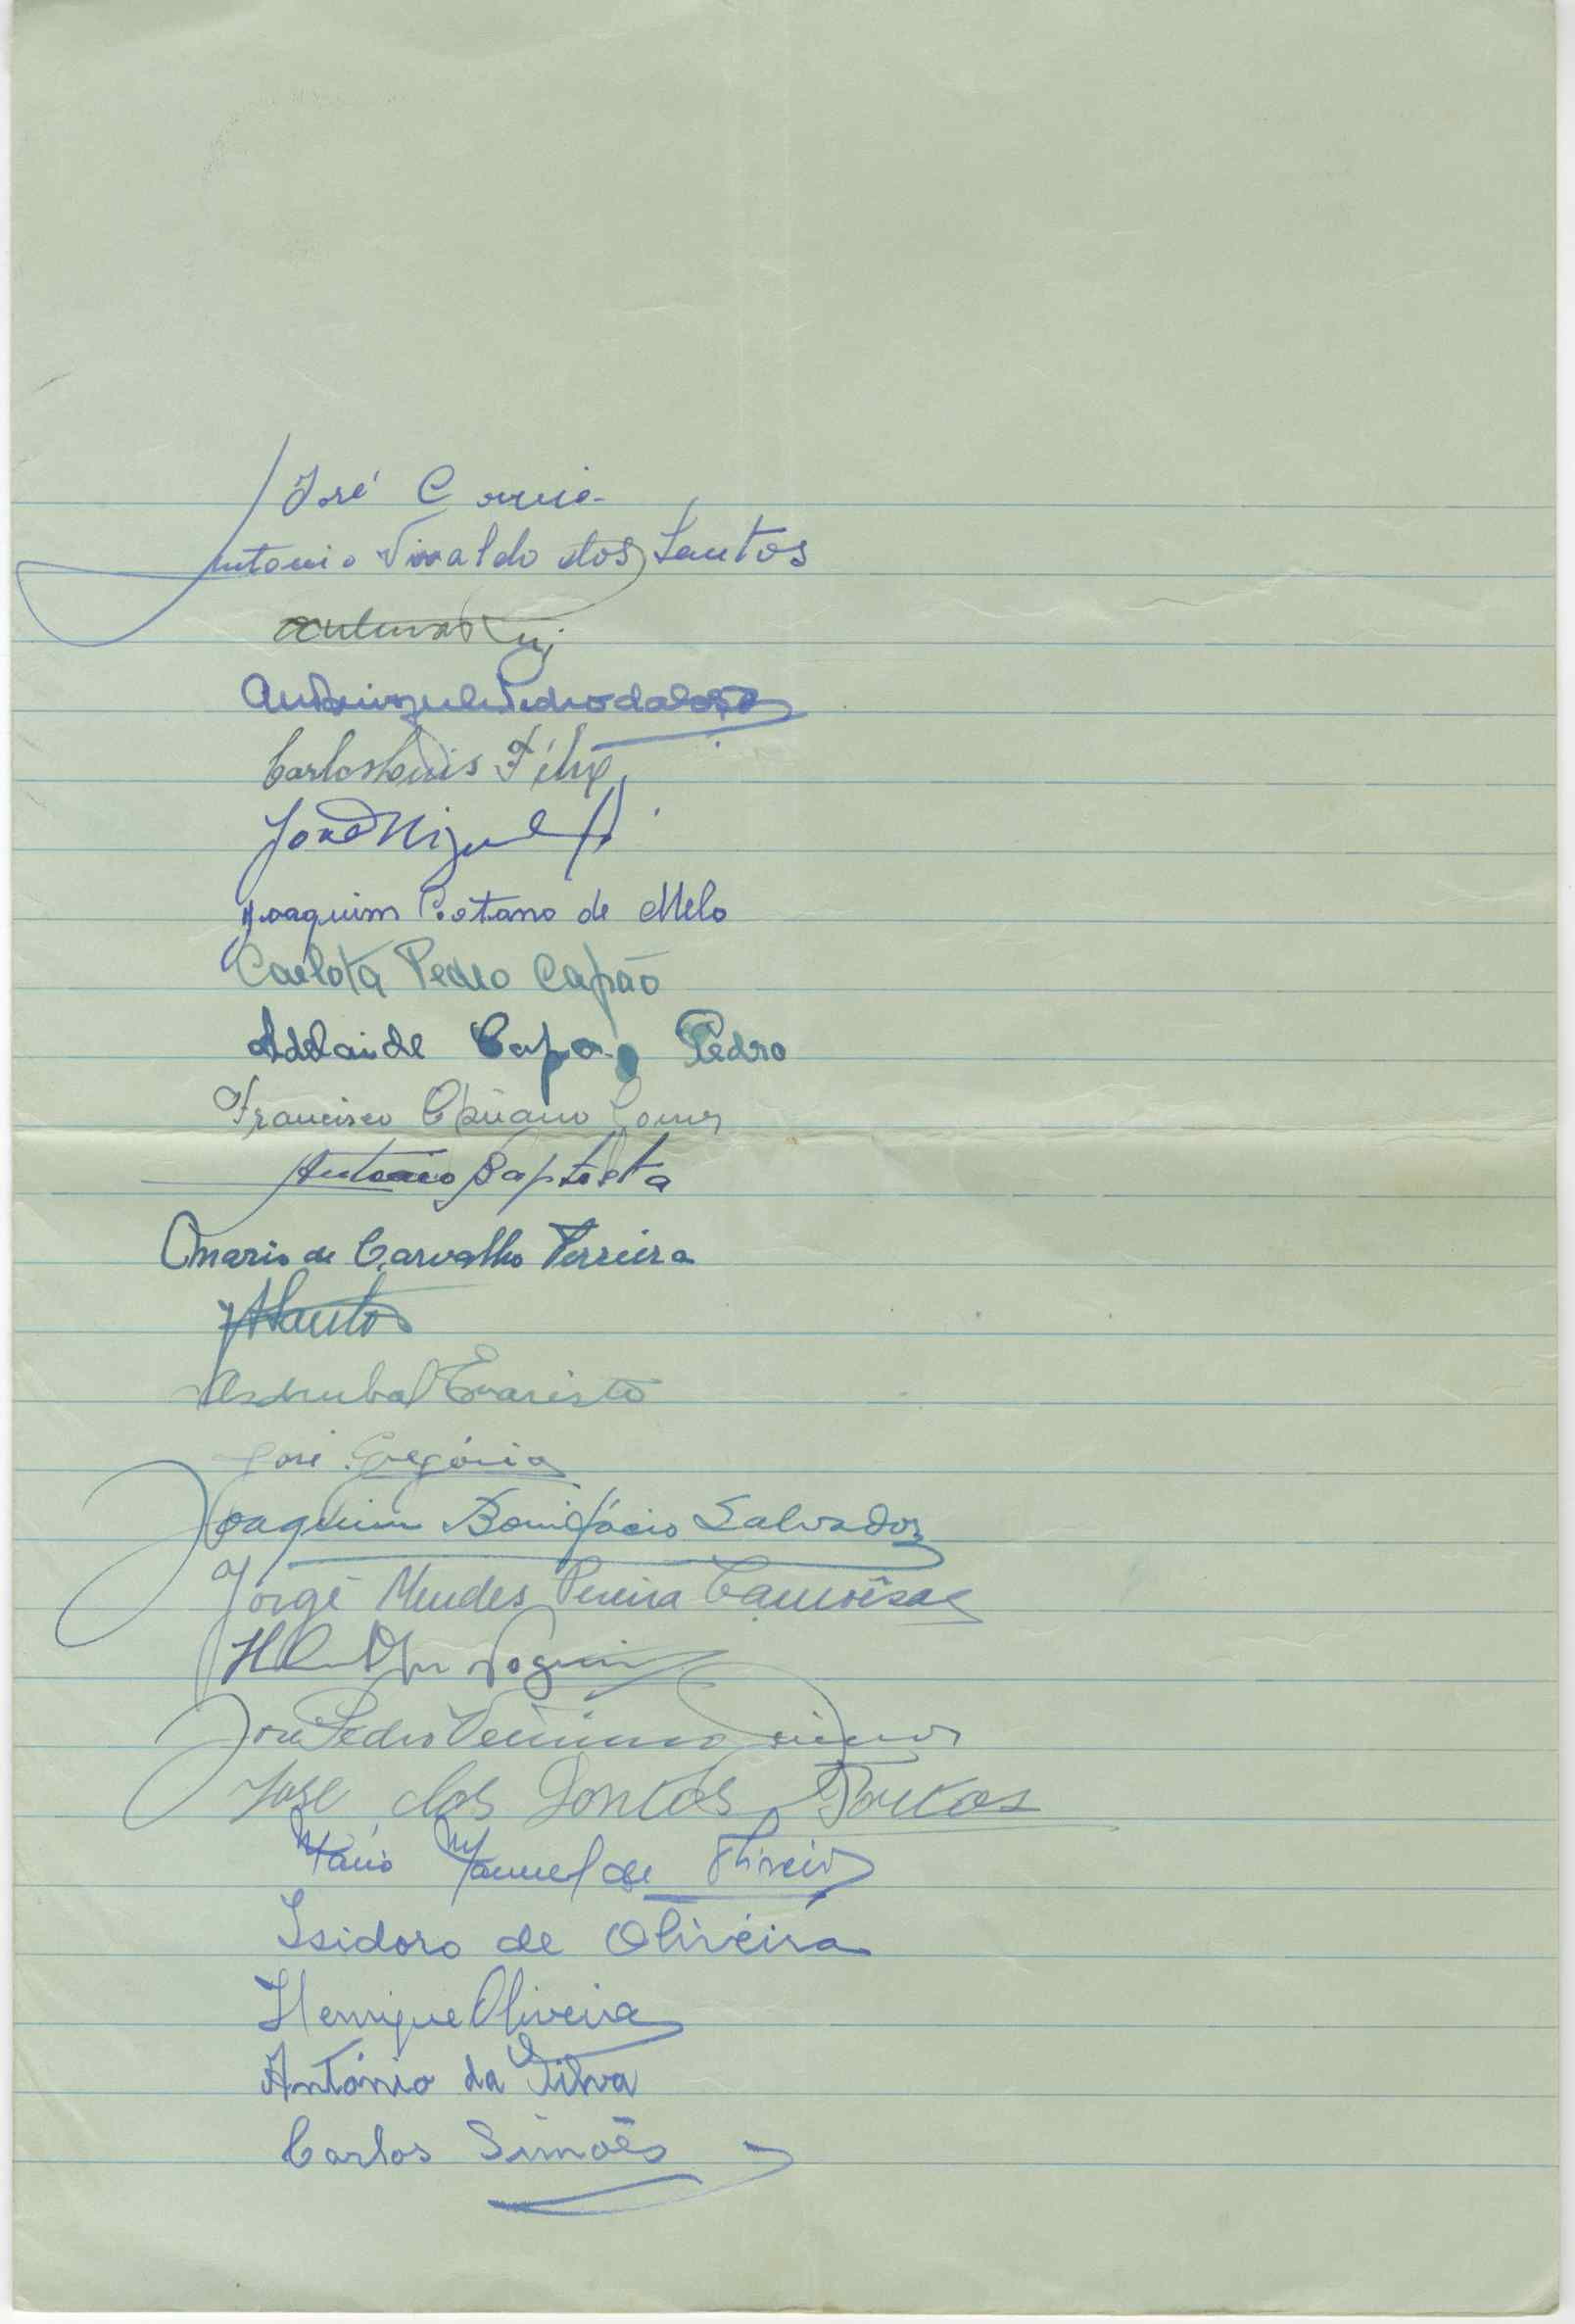 José Correia
Antonio Vivaldo dos Santos
Pedro da
Carlos Luis Félix
José Miguel
Joaquim Caetano de Melo
Carlota Pedro Capão
Adelaide Capão Pedro
Francisco Gomes
António Baptista
Maria de Carvalho Ferreira
Santos
Asdrubal Evaristo
José Gregório
Joaquim Bonifácio Salvador
Jorge Mendes Pereira Camoêsas
Nogueira
José Pedro
José dos Santos
Mário Manuel de Oliveira
Isidoro de Oliveira
Henrique Oliveira
António da Silva
Carlos Simões